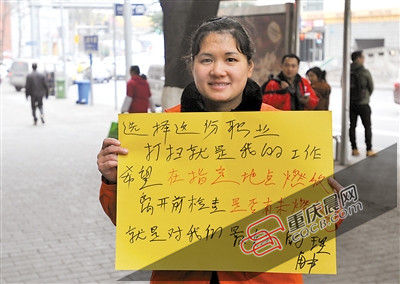 选择这份职业
打扫就是我的工作
希望在指定地点燃
离开前检查是否未燃
就是对我的最 的理
解
重庆晨网
CQCB.COM